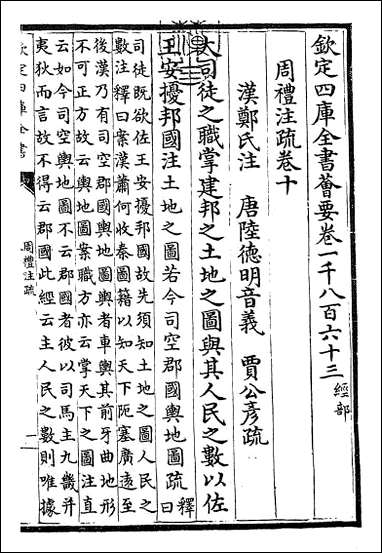 欽定四庫全書薈要卷一千八百六十三經部
周禮注疏卷十
漢鄭氏注 唐陸德明音義 賈公彥疏
大司徒之職掌建邦之土地之圖與其人民之數以佐
王安擾邦國注土地之圖若今司空郡國輿地圖疏釋曰
司徒既欲佐王安擾邦國故先須知土地之圖人民之
數注釋曰案漢蕭何收秦圖籍以知天下阨塞廣遠至
後漢乃有司空郡國輿地圖輿者車輿其前牙曲地形
不可正方故云輿地圖案職方亦云掌天下之圖注直
云如今司空輿地圖不云郡國者彼以司馬主九畿并
夷狄而言故不得云郡國此經云主人民之數則唯據
欽定四庫全書
周禮注疏
一